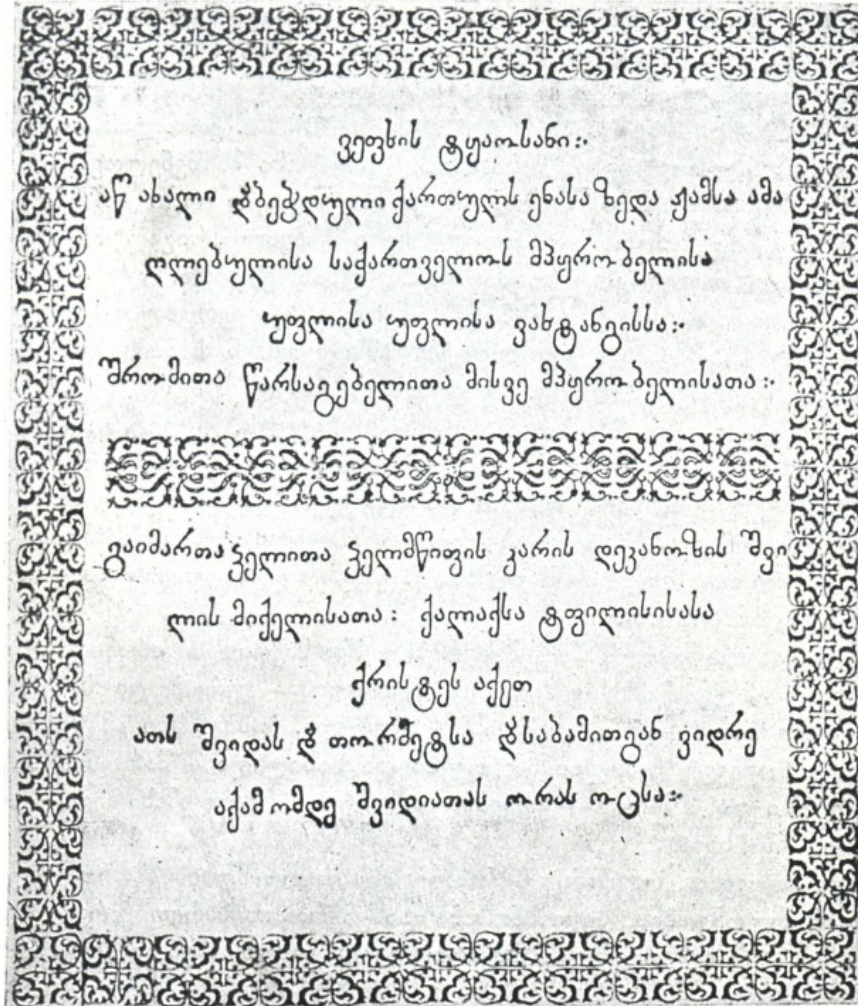 ვეფხის ტყაოსანი:·
აწ ახალი დბეჭდული ქართულს ენასა ზედა ჟამსა ამა
ღლებულისა საქართველოს მპყრობელისა
უფლისა უფლისა ვახტანგისსა:·
შრომითა წარსაგებელითა მისვე მპყრობელისათა:·
გაიმართა ჴელითა ჴელმწიფის კარის დეკანოზის შვი
ლის მიქელისათა: ქალაქსა ტფილისისასა
ქრისტეს აქეთ
ათს შვიდას და თორმეტსა დსაბამითგან ვიდრე
აქამომდე შვიდიათას ორას ოცსა:·